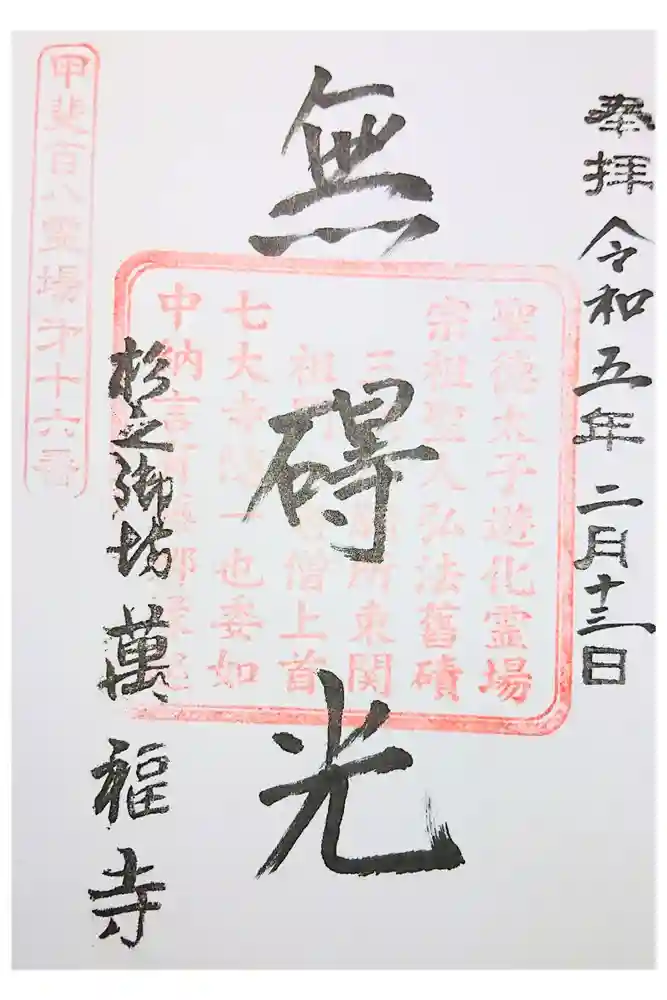 奉拝 令和五年 二月十三日
無碍光
聖徳太子遊化霊場
宗祖聖人弘法舊磧
三 所東関
祖 僧上首
七大寺 一也委如
中納言
杉之御坊 萬福寺
甲斐百八霊場才十六番